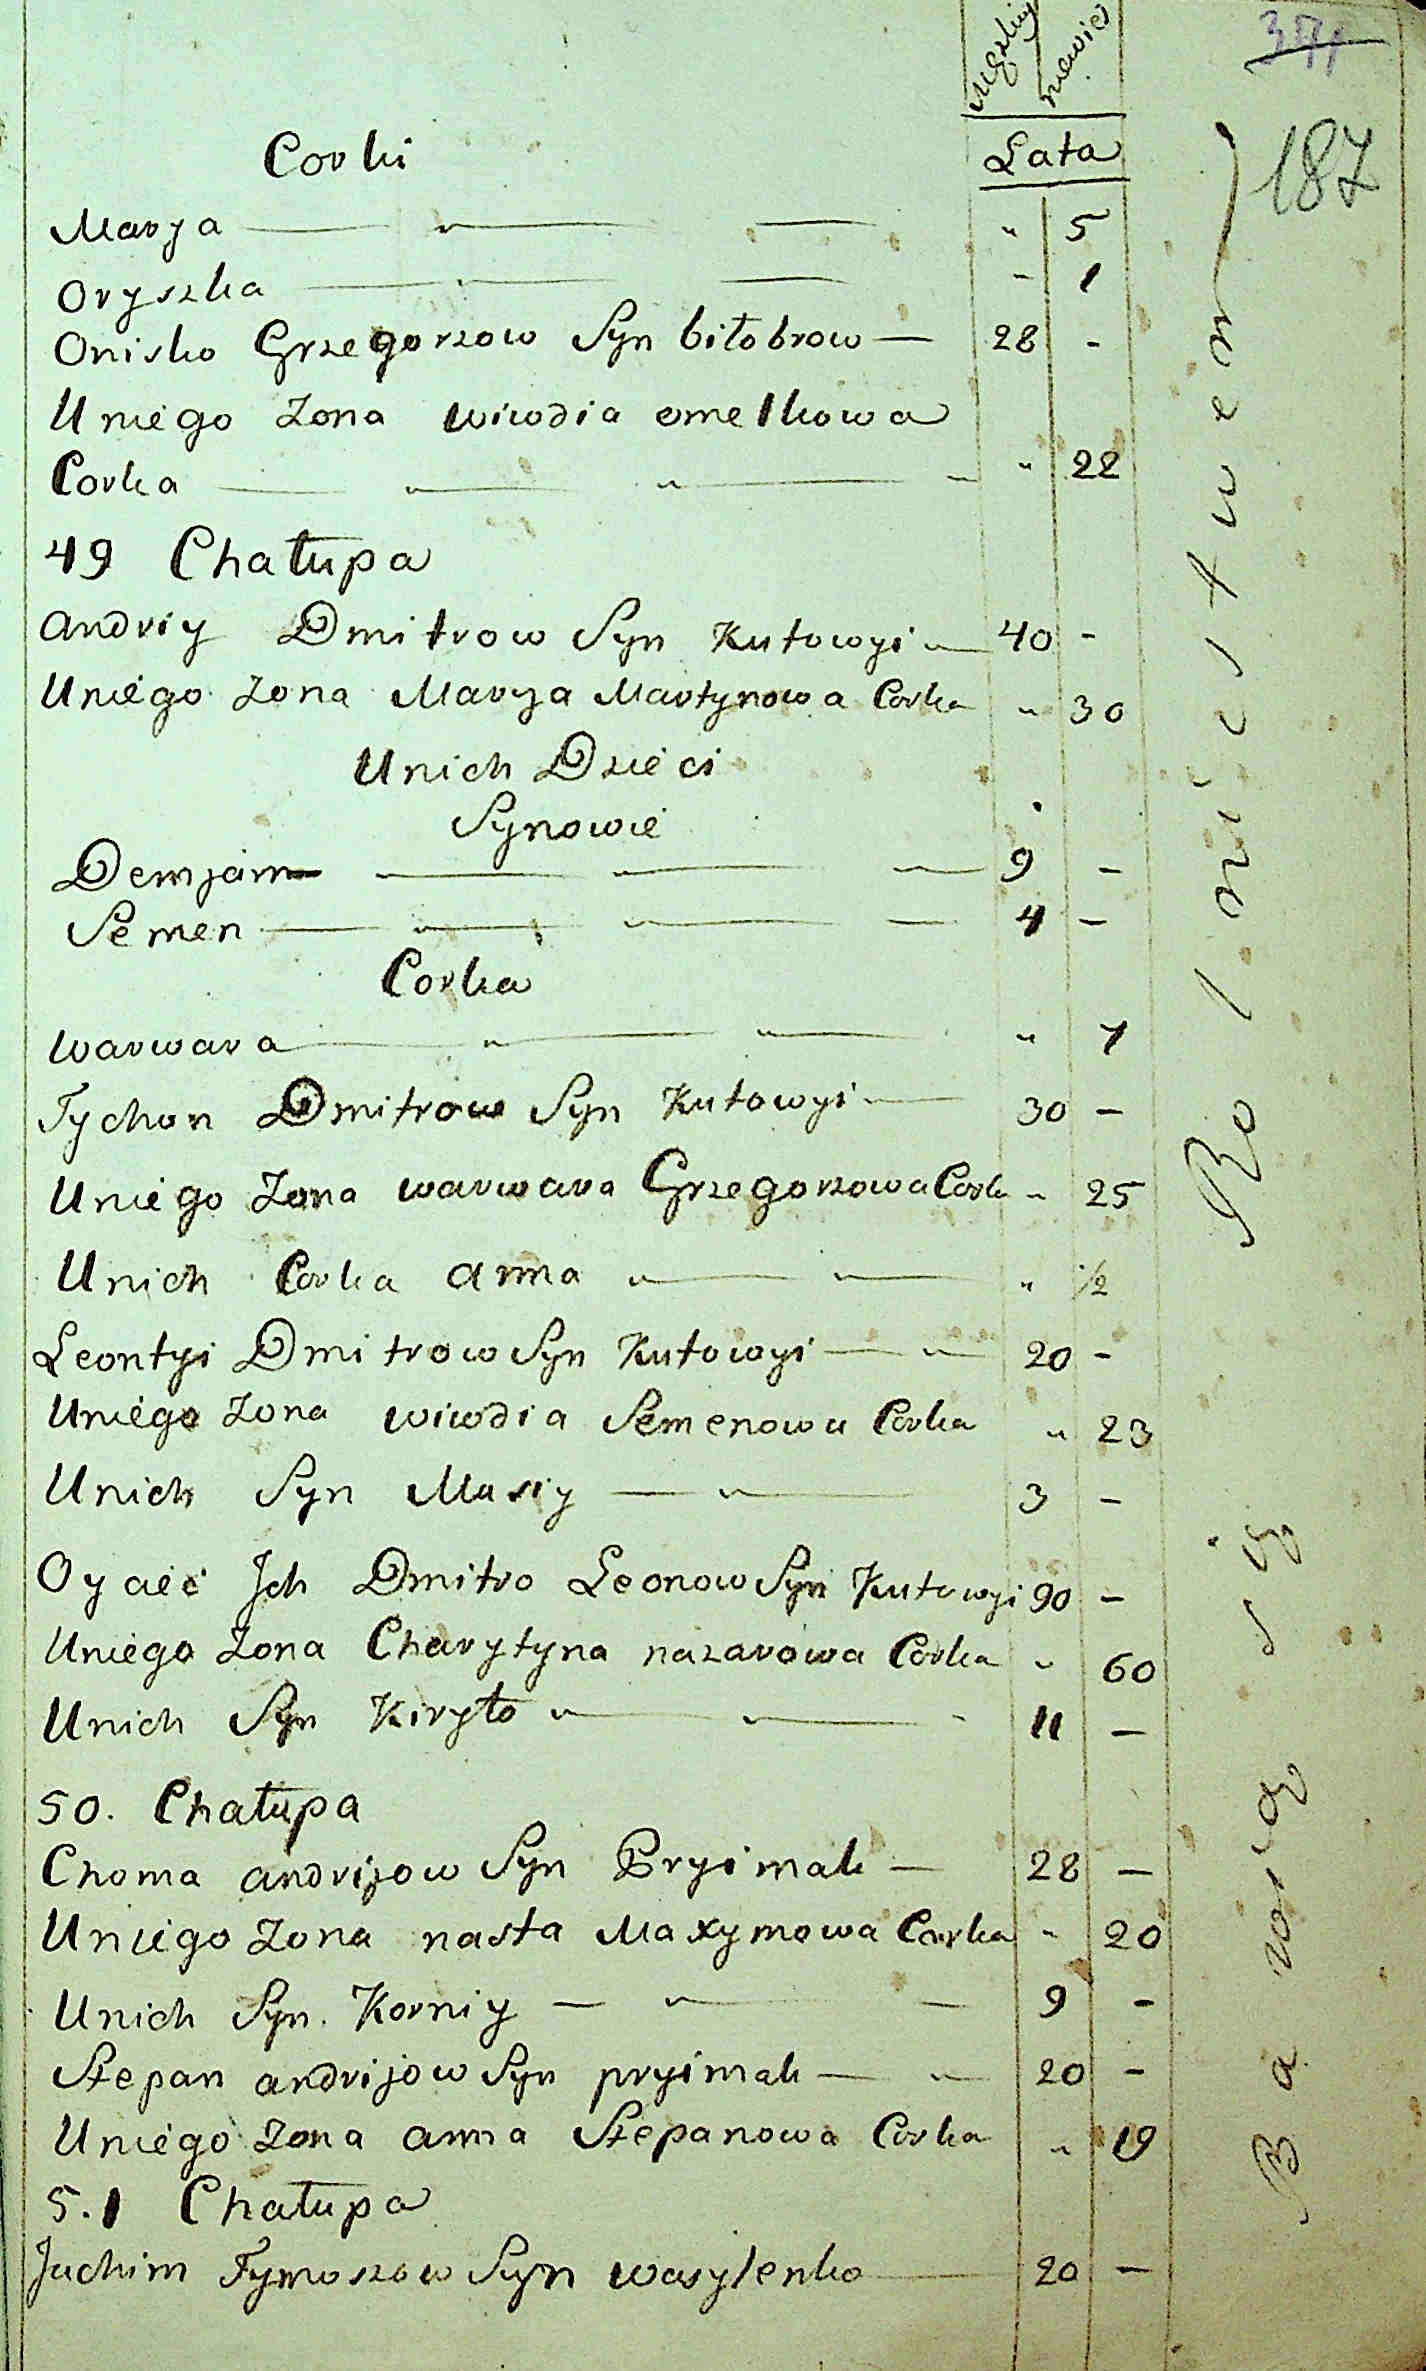 371
187
Męzkiey
niewies
Lata
Corki
Marja — " — — " 5
Oryszka — " — — - 1
Onisko Grzegorzow Syn biłobrow — 28 -
Uniego Zona wiwdia omelkowa
Corka — " — " — " 22
49 Chałupa
andriy Dmitrow Syn Kutowyi " — 40 -
Uniego Zona Marya Martynowa Corka " 30
Unich Dzieci
Synowie
Demjan — — — 9 -
Semen — " — " — 4 -
Corka
warwara — " — " — " 7
Tychon Dmitrow Syn Kutowyi — 30 -
Uniego Zona warwara Grzegorzowa Cork " 25
Unich Corka anna " — — " 1/2
Leontyi Dmitrow Syn Kutowyi — " — 20 -
Uniego Zona wiwdia Semenowa Corka " 23
Unich Syn Musiy — " — 3 -
Oyciec Ich Dmitro Leonow Syn Kutowyi 90 -
Uniego Zona Charytyna nazarowa Corka " 60
Unich Syn Kiryło " — — - 11 -
50. Chałupa
Choma andrijow Syn Pryimak — 28 -
Uniego Zona nasta Maxymowa Corka " 20
Unich Syn. Korniy — " — — 9 -
Stepan andrijow Syn pryimak — " — 20 -
Uniego Zona anna Stepanowa Corka " 19
5.1 Chałupa
Juchim Tymoszow Syn wasylenko — 20 -
Bawiąo się Rolnictwem